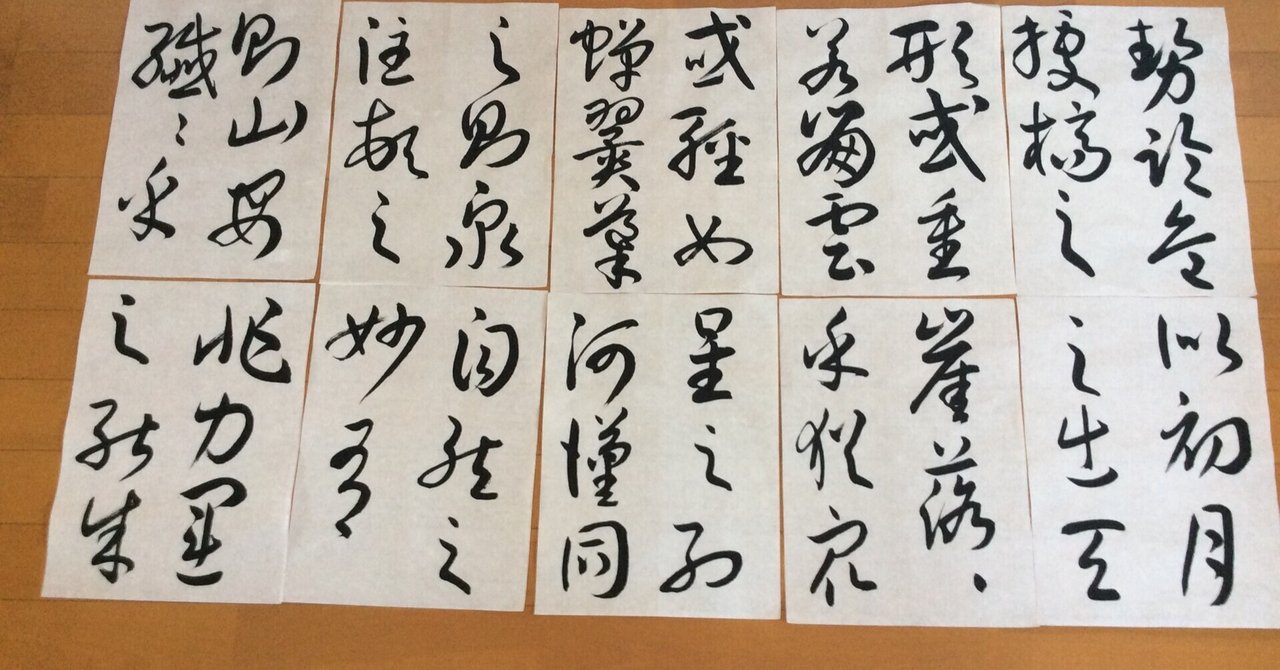 勢臨危
據槁之
形或重
若崩雲
或輕如
蟬翼導
之則泉
注頓之
則山安
纖〻乎
似初月
之出天
崖落〻
乎猶眾
星之列
河漢同
自然之
妙有
非力運
之能成